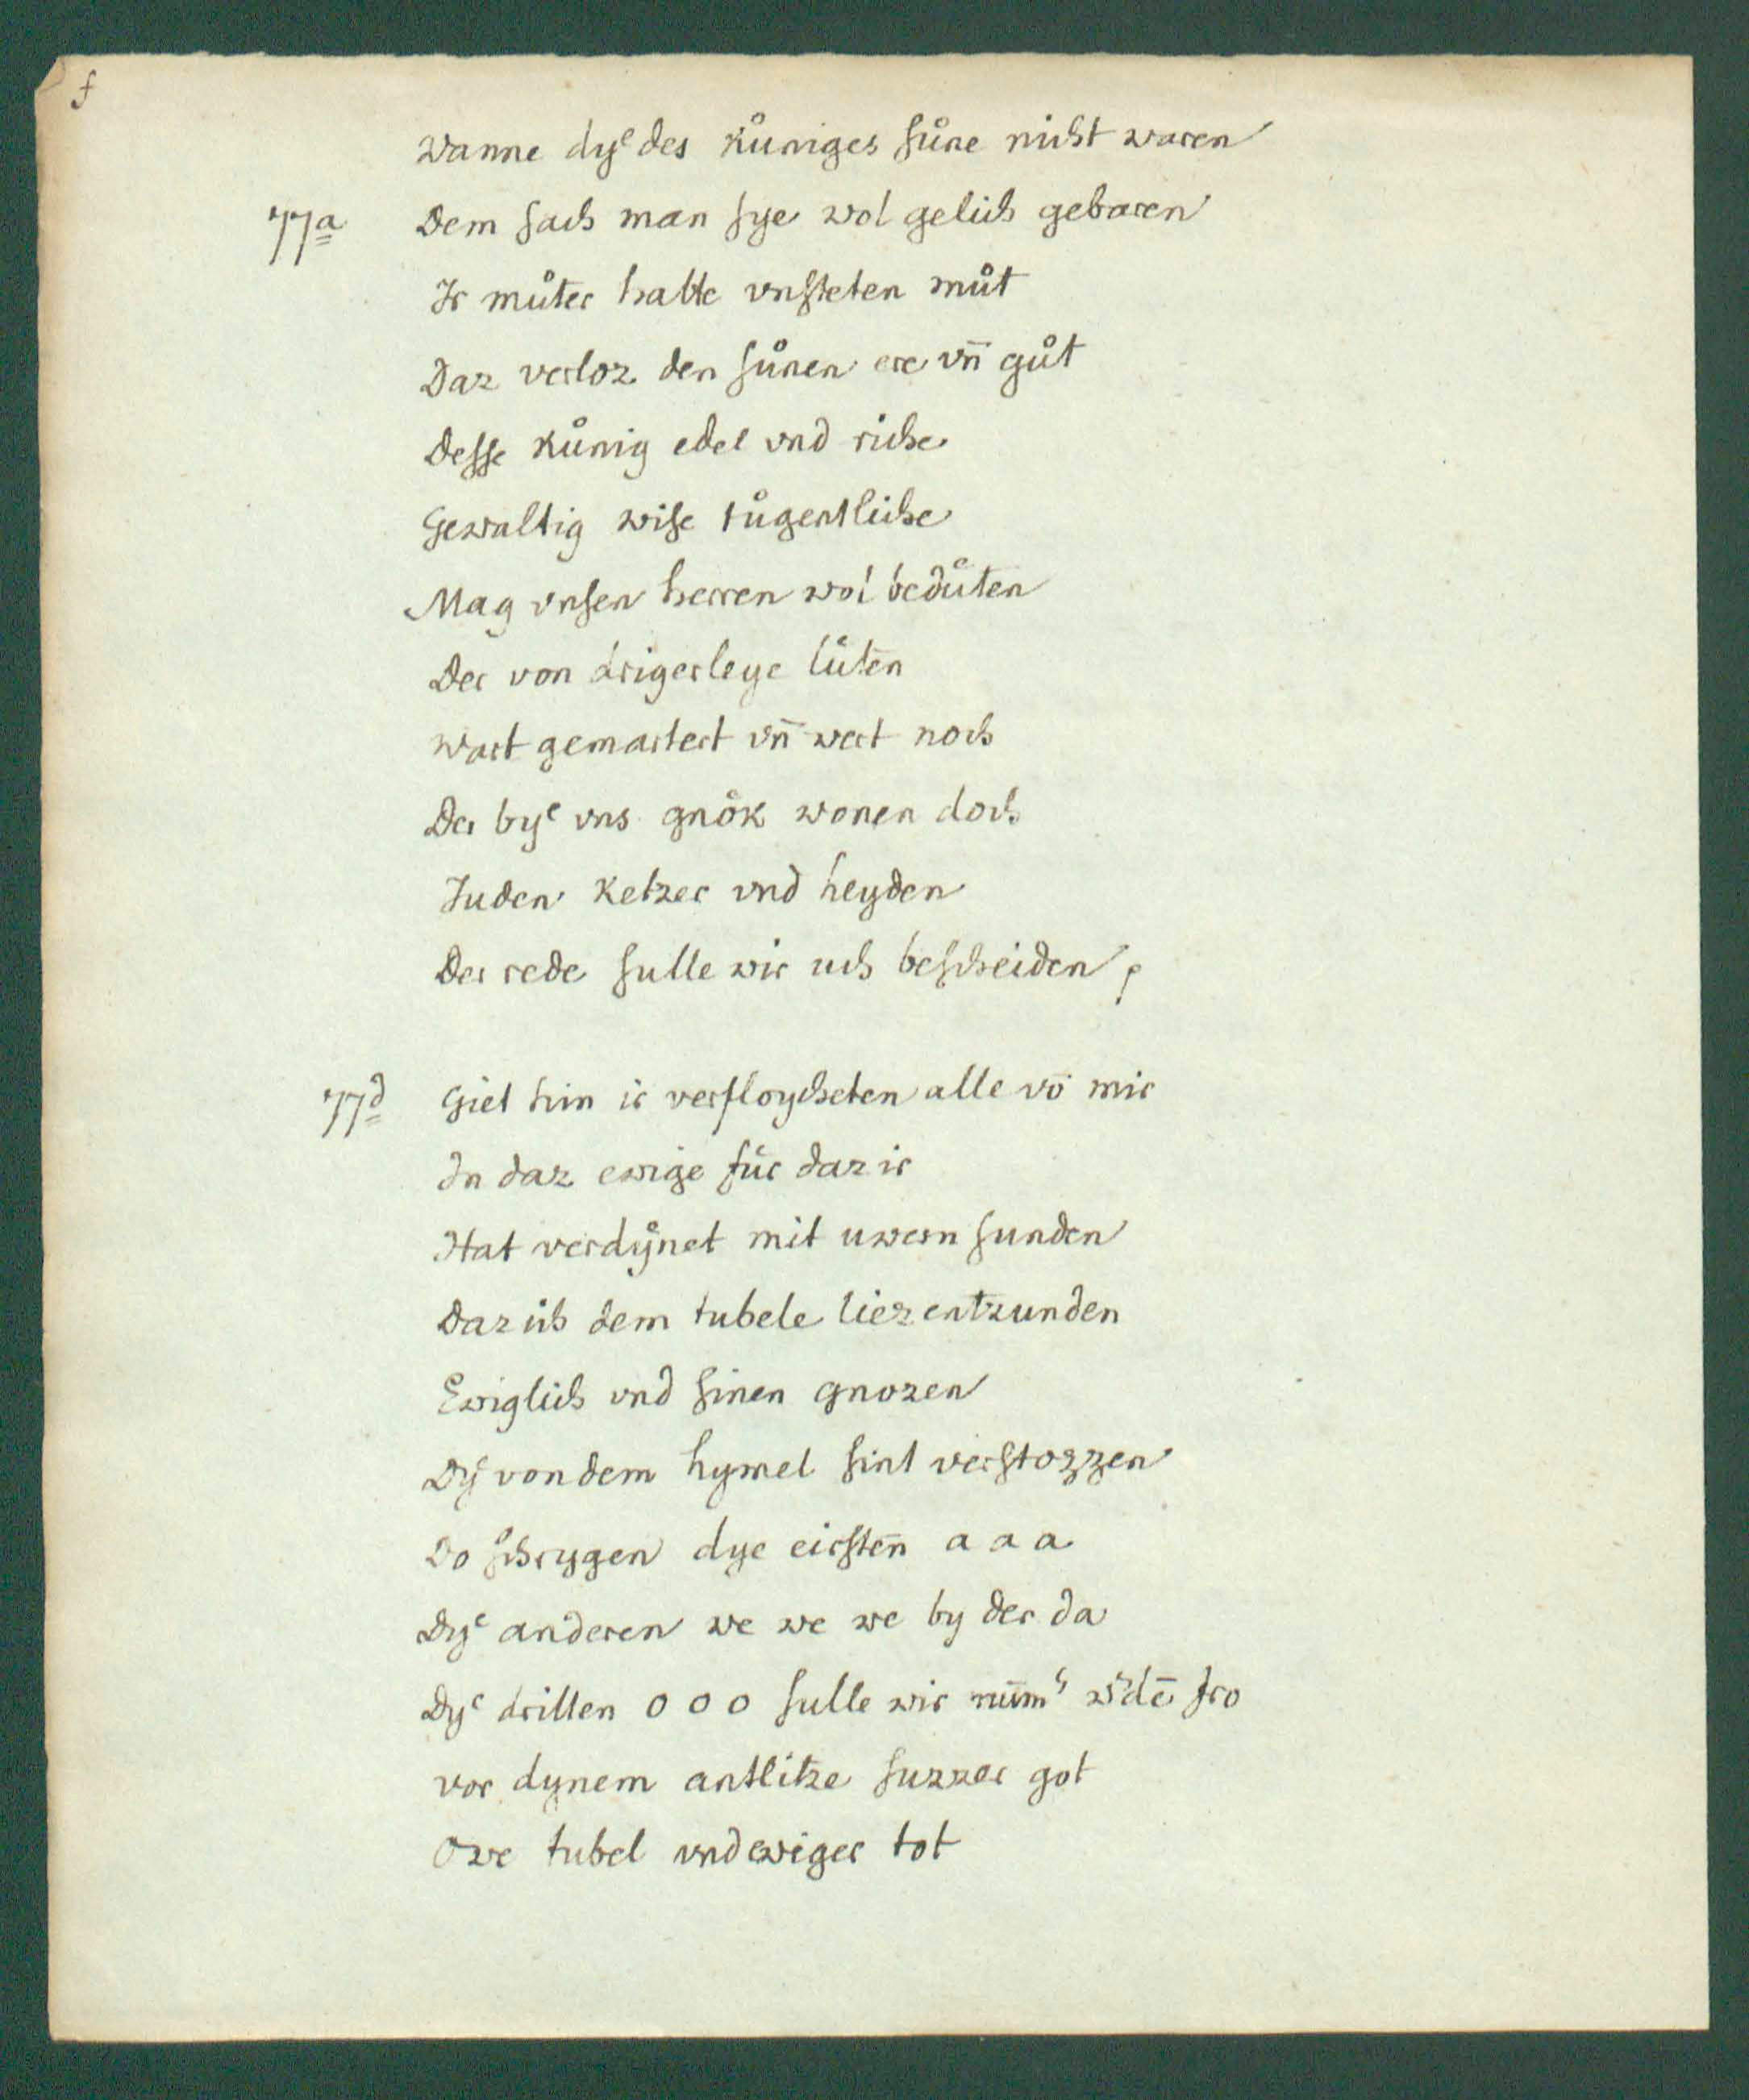 f
wanne dyͤ des kůniges ſůne nicht waren
77a Dem ſach man ſye wol gelich gebaren
Ir můter hatte vnſteten můt
Daz verloz den ſůnen ere vn̄ gůt
Deſſe kůnig edel vnd riche
Gewaltig wiſe tůgentliche
Mag vnſen herren wol bedůten
Der von drigerleye lůten
wart gemartert vn̄ wert noch
Der byͤ vns gnők wonen doch
Juden ketzer vnd heyden
Der rede ſulle wir uch beſcheiden
77d Giet hin ir verfloycheten alle vō mir
In daz ewige fůr daz ir
Hat verdẙnet mit uwern ſunden
Daz ich dem tubele liez entzunden
Ewiglich vnd ſinen gnozen
Dy von dem hymel ſint verſtozzen
Do ſchrygen dye eirſten̄ a a a
Dyͤ anderen we we we by der da
Dyͤ dritten o o o ſulle wir nūm' w'dē fro
vor dynem antlitze ſuzzer got
Owe tubel vnd ewiger tot